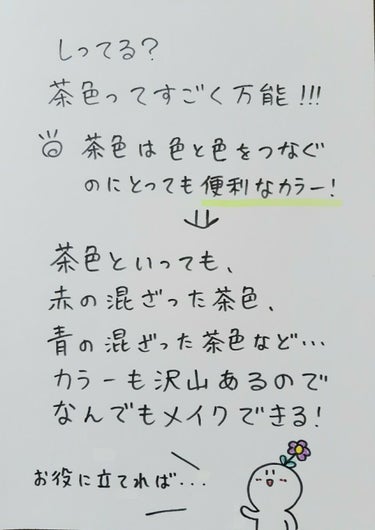 しってる?
茶色ってすごく万能!!!
茶色は色と色をつなぐ
のにとっても便利なカラー!
茶色といっても、
赤の混ざった茶色、
青の混ざった茶色など…
カラーも沢山あるので
なんでもメイクできる!
お役に立てれば...